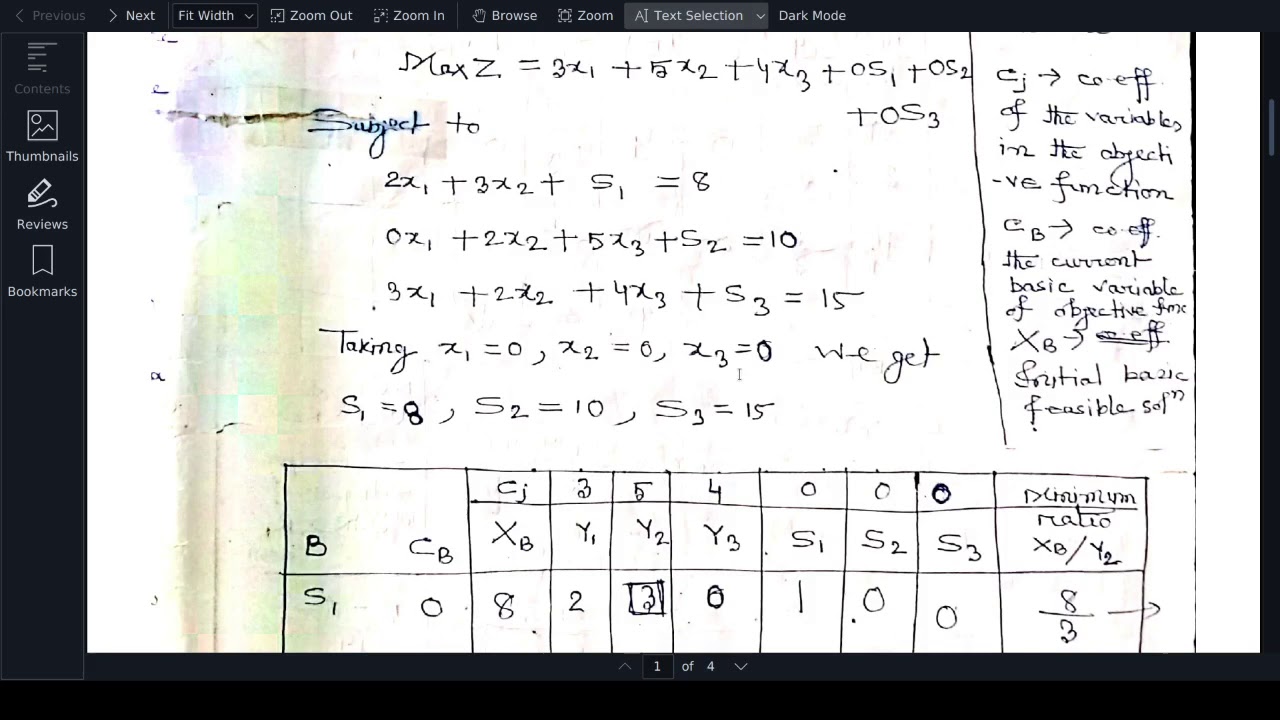 Previous Next Fit Width Zoom Out Zoom In Browse Zoom Text Selection Dark Mode
Contents
Thumbnails
Reviews
Bookmarks
Max Z = 3x₁ + 5x₂ + 4x₃ + 0S₁ + 0S₂
+ 0S₃
Subject to
2x₁ + 3x₂ + S₁ = 8
0x₁ + 2x₂ + 5x₃ + S₂ = 10
3x₁ + 2x₂ + 4x₃ + S₃ = 15
Taking x₁ = 0, x₂ = 0, x₃ = 0 we get
S₁ = 8, S₂ = 10, S₃ = 15
Cj → co eff.
of the variables
in the objecti
-ve function
CB → co eff.
the current
basic variable
of objective func
XB → co eff.
Initial basic
feasible solⁿ
Cj 3 5 4 0 0 0 Minimum
ratio
B CB XB Y₁ Y₂ Y₃ S₁ S₂ S₃ XB/Y₂
S₁ 0 8 2 3 0 1 0 0 8/3 →
1 of 4